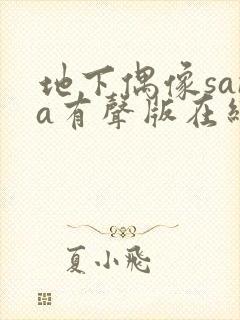 地下偶像sa
a有聲版在
夏小飛